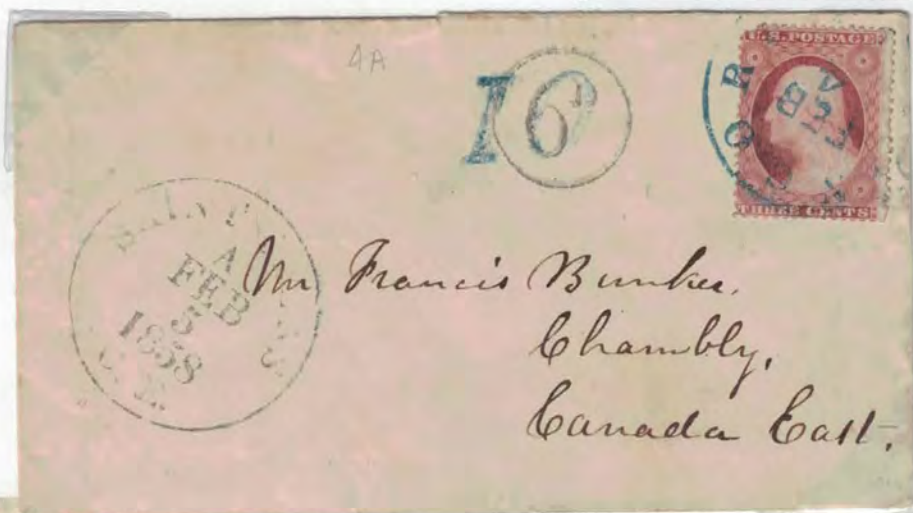 4A
I 6
U.S. POSTAGE
THREE CENTS
A
FEB
5
1858
Mr Francis Bunker.
Chambly,
Canada East.